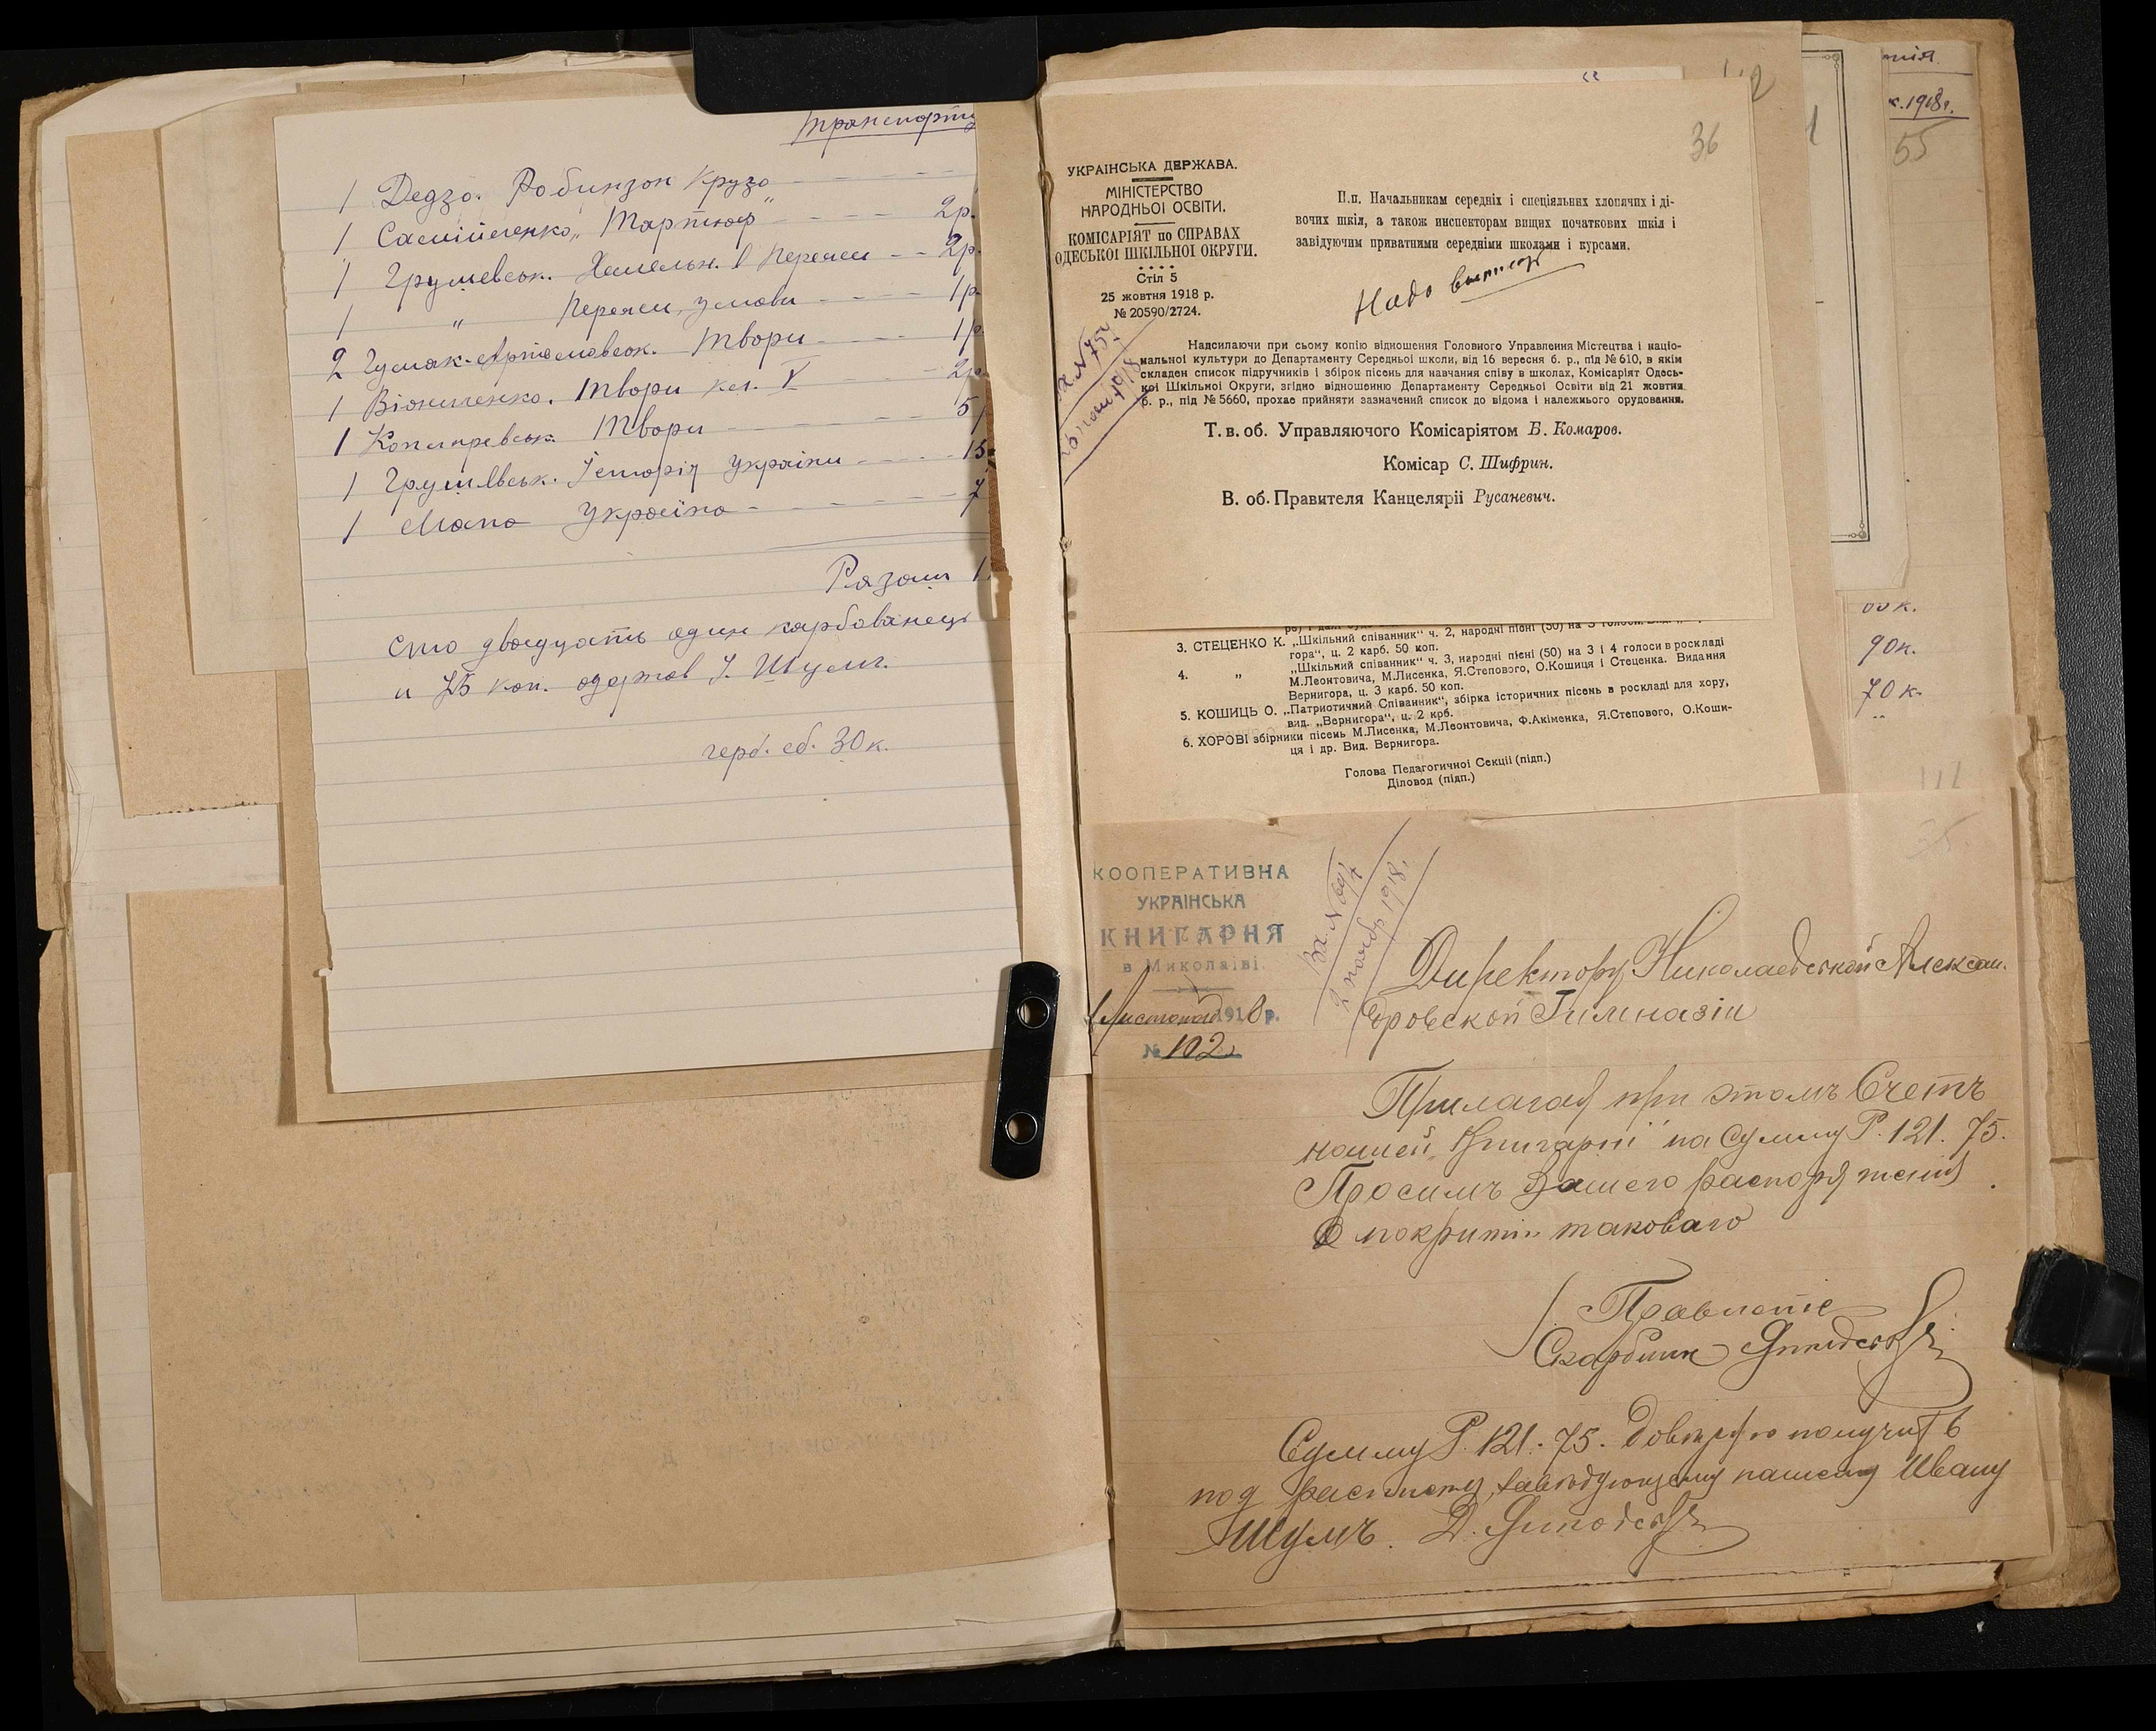 транспорту
1 Дедзо. Робинзон Крузо
1 Самійленко „Тартюф" 2р.
1 Грушевськ. Хмельн. в Переяси 2р.
1 " Переяси, умови 1р.
2 Гумак-Артемовськ. Твори 1р.
1 Вінниченко. Твори кн. V 2р.
1 Котляревськ. Твори 5
1 Грушевськ. Історія України 15
1 Мапа України 7
Разом 1
Сто двадцать один карбованець
и 75 коп. одержав І. Шумъ.
герб. сб. 30 к.
36
УКРАІНСЬКА ДЕРЖАВА.
МІНІСТЕРСТВО
НАРОДНЬОІ ОСВІТИ.
КОМІСАРІЯТ по СПРАВАХ
ОДЕСЬКОІ ШКІЛЬНОІ ОКРУГИ.
Стіл 5
25 жовтня 1918 р.
№ 20590/2724.
П.п. Начальникам середніх і спеціяльних хлопячих і ді-
вочих шкіл, а також инспекторам вищих початкових шкіл і
завідуючим приватними середніми школами і курсами.
Надо выписать
Надсилаючи при сьому копію відношення Головного Управління Містецтва і націо-
мальної культури до Департаменту Середньої школи, від 16 вересня б. р., під № 610, в якім
складен список підручників і збірок пісень для навчання співу в школах, Комісаріят Одесь-
кої Шкільної Округи, згідно відношенню Департаменту Середньої Освіти від 21 жовтня
б. р., під № 5660, прохає прийняти зазначений список до відома і належнього орудовання.
Т. в. об. Управляючого Комісаріятом Б. Комаров.
Комісар С. Шифрин.
В. об. Правителя Канцелярії Русаневич.
3. СТЕЦЕНКО К. „Шкільний співанник" ч. 2, народні пісні (50) на 3
гора", ц. 2 карб. 50 коп.
4. „ „Шкільний співанник" ч. 3, народні пісні (50) на 3 і 4 голоси в роскладі
М.Леонтовича, М.Лисенка, Я.Степового, О.Кошиця і Стеценка. Видання
Вернигора, ц. 3 карб. 50 коп.
5. КОШИЦЬ О. „Патриотичний Співанник", збірка історичних пісень в роскладі для хору,
вид. „Вернигора", ц. 2 крб.
6. ХОРОВІ збірники пісень М.Лисенка, М.Леонтовича, Ф.Акіменка, Я.Степового, О.Коши-
ця і др. Вид. Вернигора.
Голова Педагогичної Секції (підп.)
Діловод (підп.)
КООПЕРАТИВНА
УКРАІНСЬКА
КНИГАРНЯ
в Миколаїві.
1 Листопад 1918 р.
№ 102
2 ноябр. 1918.
Директору Николаевской Алексан-
дровской Гимназіи
Прилагая при этомъ Счетъ
нашей „Книгарні" на Сумму Р. 121. 75.
Просимъ Вашего распоряженія
О покритіи таковаго
Правленіе
Скарбник
Сумму Р. 121. 75. довѣряю получить
под расписку, завѣдующему нашему Ивану
Шумъ. Д.
нія.
к. 1918г.
55
90к.
70к.